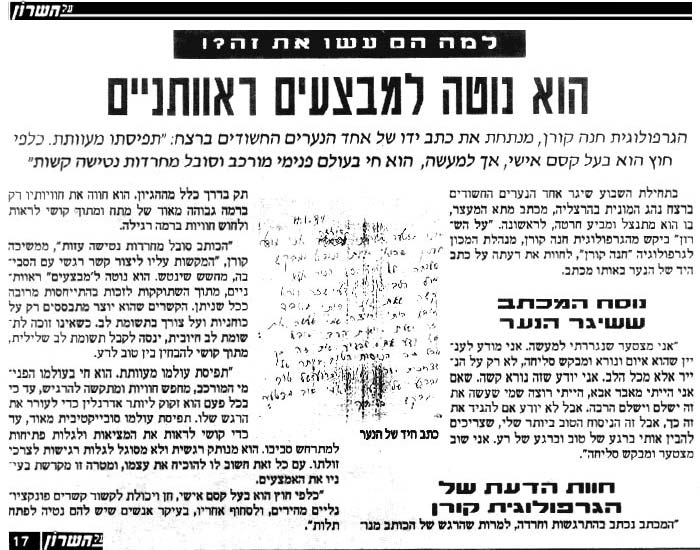 על השרון
למה הם עשו את זה?!
הוא נוטה למבצעים ראוותניים
הגרפולוגית חנה קורן, מנתחת את כתב ידו של אחד הנערים החשודים ברצח: "תפיסתו מעוותת. כלפי
חוץ הוא בעל קסם אישי, אך למעשה, הוא חי בעולם פנימי מורכב וסובל מחרדות נטישה קשות"
בתחילת השבוע שיגר אחד הנערים החשודים
ברצח נהג המונית בהרצליה, מכתב מתא המעצר,
בו הוא מתנצל ומביע חרטה, לראשונה. "על הש־
רון" ביקש מהגרפולוגית חנה קורן, מנהלת המכון
לגרפולוגיה "חנה קורן", לחוות את דעתה על כתב
היד של הנער באותו מכתב.
נוסח המכתב
ששיגר הנער
"אני מצטער שנגררתי למעשה. אני מודע לענ־
יין שהוא איום ונורא ומבקש סליחה, לא רק על הנ־
ייר אלא מכל הלב. אני יודע שזה נורא קשה. שאם
אני הייתי מאבד אבא, הייתי רוצה שמי שעשה את
זה ישלם וישלם הרבה. אבל לא יודע אם להגיד את
זה כך, אבל זה הניסוח הטוב ביותר שלי, שצריכים
להבין אותי ברגע של טוב וברגע של רע. אני שוב
מצטער ומבקש סליחה".
חוות הדעת של
הגרפולוגית קורן
"המכתב נכתב בהתרגשות וחרדה, למרות שהרגש של הכותב מנו־
כתב היד של הנער
תק בדרך כלל מההגיון. הוא חווה את חוויותיו רק
ברמה גבוהה מאוד של מתח ומתוך קושי לראות
ולחוש חוויות ברמה רגילה.
"הכותב סובל מחרדות נטישה עזות", ממשיכה
קורן, "המקשות עליו ליצור קשר רגשי עם הסבי־
בה, מחשש שינטש. הוא נוטה ל'מבצעים" ראוות־
ניים, מתוך השתוקקות לזכות בהתייחסות מרובה
ככל שניתן. הקשרים שהוא יוצר מתבססים רק על
כוחניות ועל צורך בתשומת לב. כשאינו זוכה לת־
שומת לב חיובית, ינסה לקבל תשומת לב שלילית,
מתוך קושי להבחין בין טוב לרע.
"תפיסת עולמו מעוותת. הוא חי בעולמו הפני־
מי המורכב, מחפש חוויות ומתקשה להרגיש, עד כי
בכל פעם הוא זקוק ליותר אדרנלין כדי לעורר את
הרגש שלו. תפיסת עולמו סובייקטיבית מאוד, עד
כדי קושי לראות את המציאות ולגלות פתיחות
למתרחש סביבו. הוא מנותק רגשית ולא מסוגל לגלות רגישות לצרכי
זולתו. עם כל זאת חשוב לו להוכיח את עצמו, ומטרה זו מקדשת בעי־
ניו את האמצעים.
"כלפי חוץ הוא בעל קסם אישי, חן ויכולת לקשור קשרים פונקציו־
נליים מהירים, ולסחוף אחריו, בעיקר אנשים שיש להם נטיה לפתח
תלות".
על השרון 17